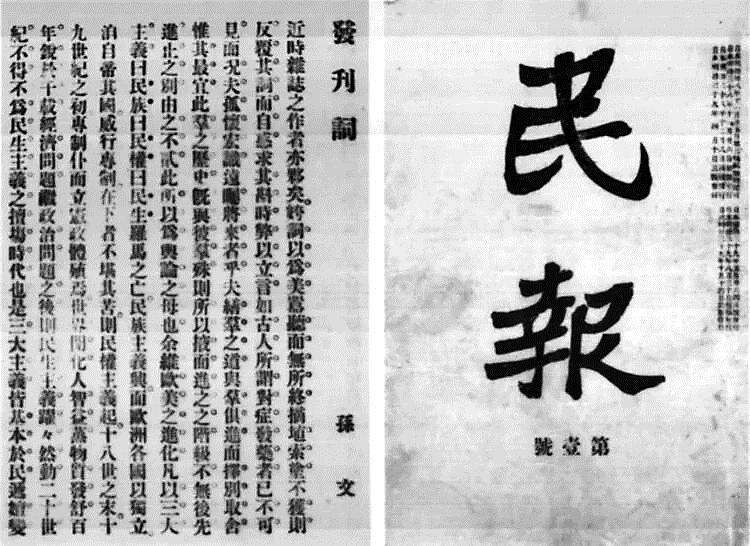 民報
第壹號
發刊詞
孫文
近時雜誌之作者亦夥矣姱詞以爲美囂聽而無所終摘埴索塗不獲則
反覆其詞而自惑求其斟時弊以立言如古人所謂對症發藥者已不可
見而况夫孤懷宏識遠矚將來者乎夫繕羣之道與羣俱進而擇別取舍
惟其最宜此羣之歷史既與彼羣殊則所以掖而進之之階級不無後先
進止之別由之不貳此所以爲輿論之母也余維歐美之進化凡以三大
主義曰民族曰民權曰民生羅馬之亡民族主義興而歐洲各國以獨立
洎自帝其國威行專制在下者不堪其苦則民權主義起十八世之末十
九世紀之初專制仆而立憲政體殖焉世界開化人智益蒸物質發舒百
年銳於千載經濟問題繼政治問題之後則民生主義躍々然動二十世
紀不得不爲民生主義之擅場時代也是三大主義皆基本於民遞嬗變